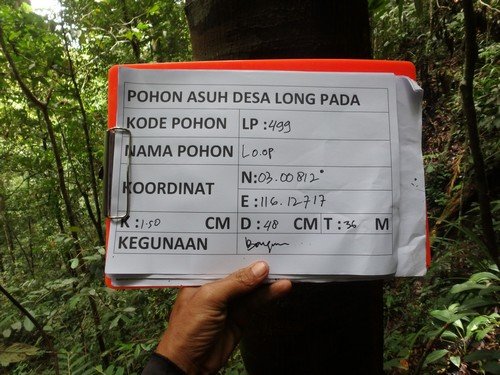 POHON ASUH DESA LONG PADA
KODE POHON LP : 499
NAMA POHON Loop
KOORDINAT N: 03.00812°
E : 116.12717
K : 150 CM D : 48 CM T : 36 M
KEGUNAAN